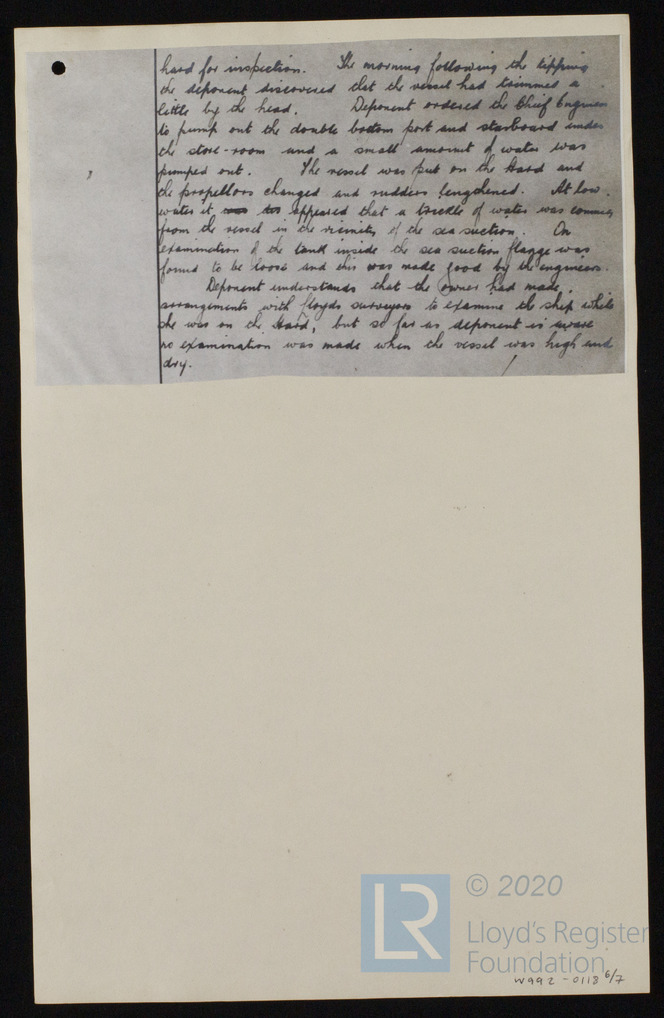 hard for inspection. The morning following the tipping
the deponent discovered that the vessel had trimmed a
little by the head. Deponent ordered the Chief Engineer
to pump out the double bottom port and starboard under
the store-room and a small amount of water was
pumped out. The vessel was put on the Hard and
the propellors changed and rudders lengthened. At low
water it appeared that a trickle of water was coming
from the vessel in the vicinity of the sea suction. On
examination of the tank inside the sea suction flange was
found to be loose and this was made good by the engineers.
Deponent understands that the owner had made
arrangements with Lloyds surveyors to examine the ship while
she was on the Hard, but so far as deponent is aware
no examination was made when the vessel was high and
dry.
LR
© 2020
Lloyd's Register
Foundation
W992-0118 6/7